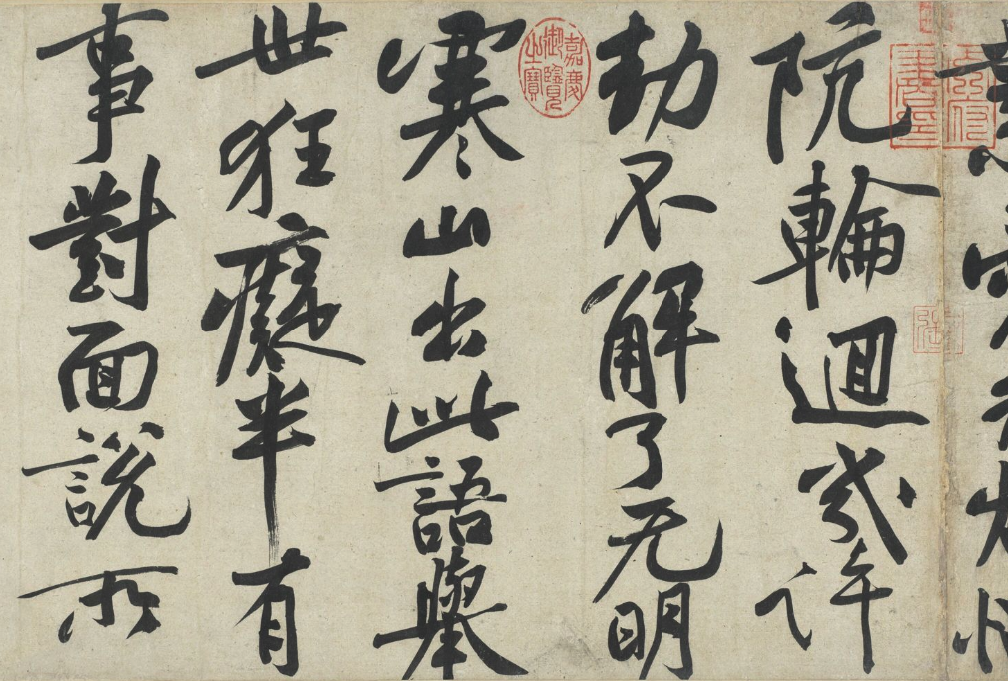 阬輪迴幾許
劫不解了无明
寒山出此語舉
世狂癡半有
事對面說所
嘉慶御覽之寶